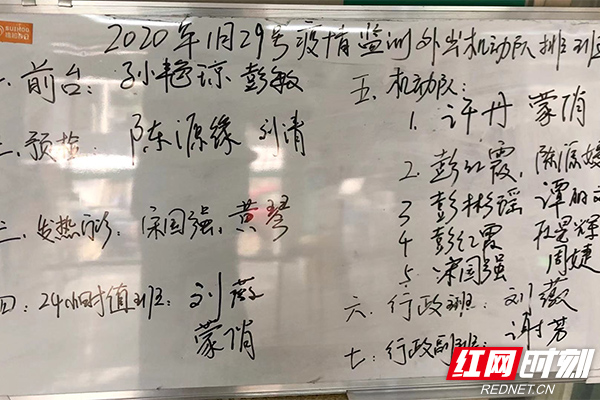 2020年1月29号疫情监测外出机动队排班
一、前台：孙艳琼 彭敏
二、预检：陈源缘 刘清
三、发热门诊：宋国强、黄琴
四：24小时值班：刘薇
蒙俏
五、机动队：
1. 许丹 蒙俏
2. 彭红霞、陈源媛
3 彭彬瑶 谭丽
4 彭红霞 辉
5、宋国强 周婕
六、行政班：刘薇
七：行政副班：谢芳
红网时刻
REDNET.CN